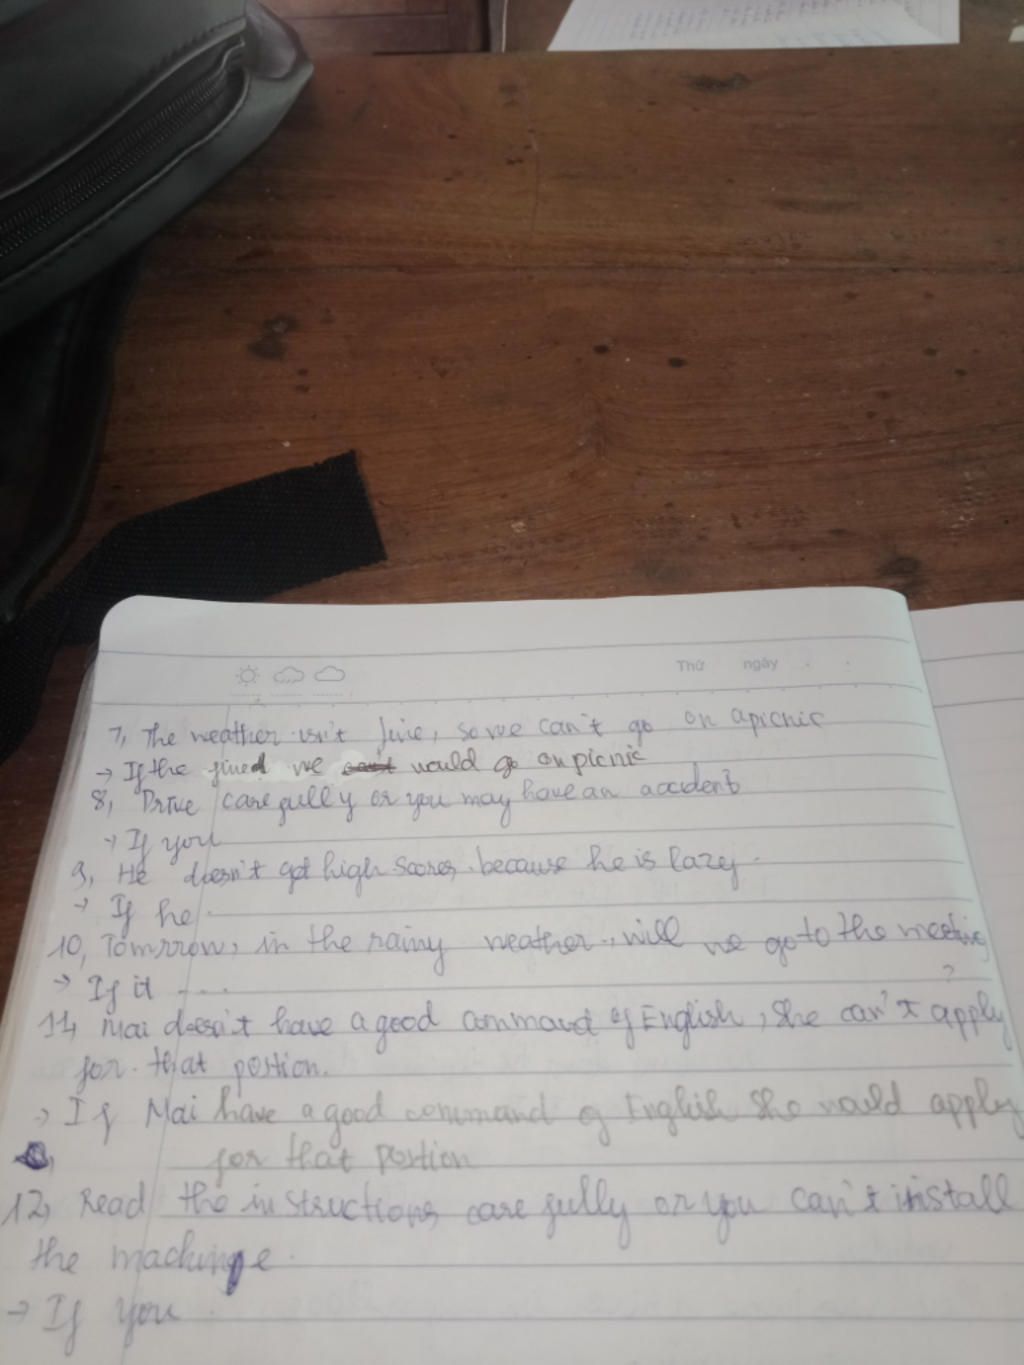 Thứ ngày
7, The weather isn't fine, so we can't go on apicnic
→ If the fined we would go on picnic
8, Drive carefully or you may have an accident
→ If you
9, He doesn't get high scores because he is lazy.
→ If he
10, Tomrrow, in the rainy weather, will we go to the meeting
?
→ If it ....
11, Mai doesn't have a good command of English, She can't apply
for that postion.
→ If Mai have a good command of English She would apply
for that postion
12, Read the instructions carefully or you can't install
the machine.
→ If you